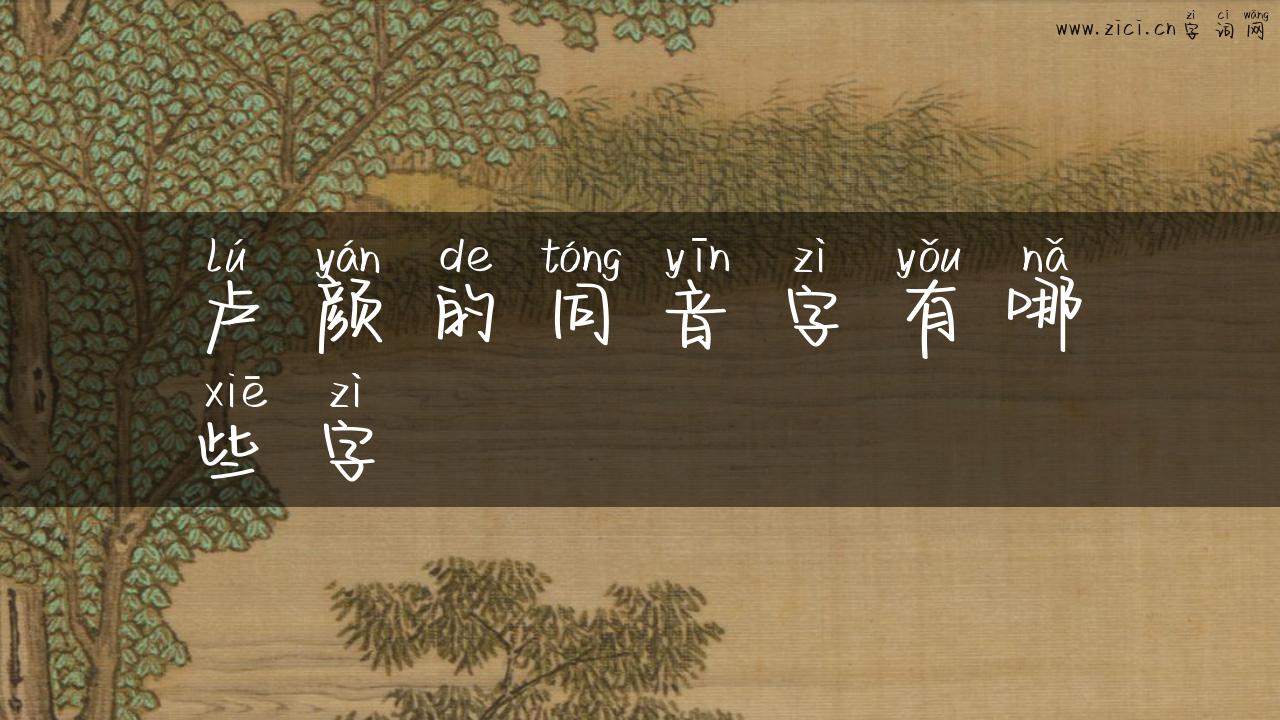 zì cí wǎng
www.zici.cn字词网
lú yán de tóng yīn zì yǒu nǎ
卢颜的同音字有哪
xiē zì
些字